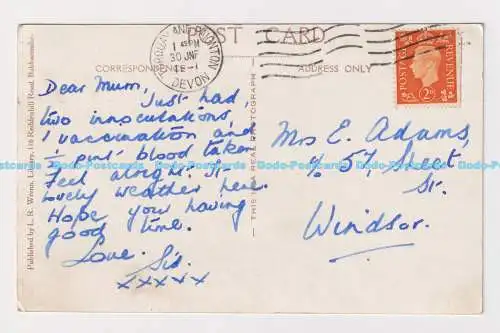 POST CARD
TORQUAY AND PAIGNTON
1 45 PM
30 JNE
DEVON
POSTAGE
REVENUE
2D
CORRESPONDENCE
ADDRESS ONLY
Dear Mum,
Just had,
two innoculations,
1 vaccination and
½ pint blood taken
Feel alright.
Lovely weather here.
Hope you having
good time.
Love. Sis.
xxxxx
Mrs E. Adams,
c/o 57, Sheet
St.
Windsor.
THIS IS A REAL PHOTOGRAPH
Published by L. R. Wrenn, Library, 116 Reddenhill Road, Babbacombe.
Do-Postcards Godo-Postcards Godo-Postcards Godo-Postcards